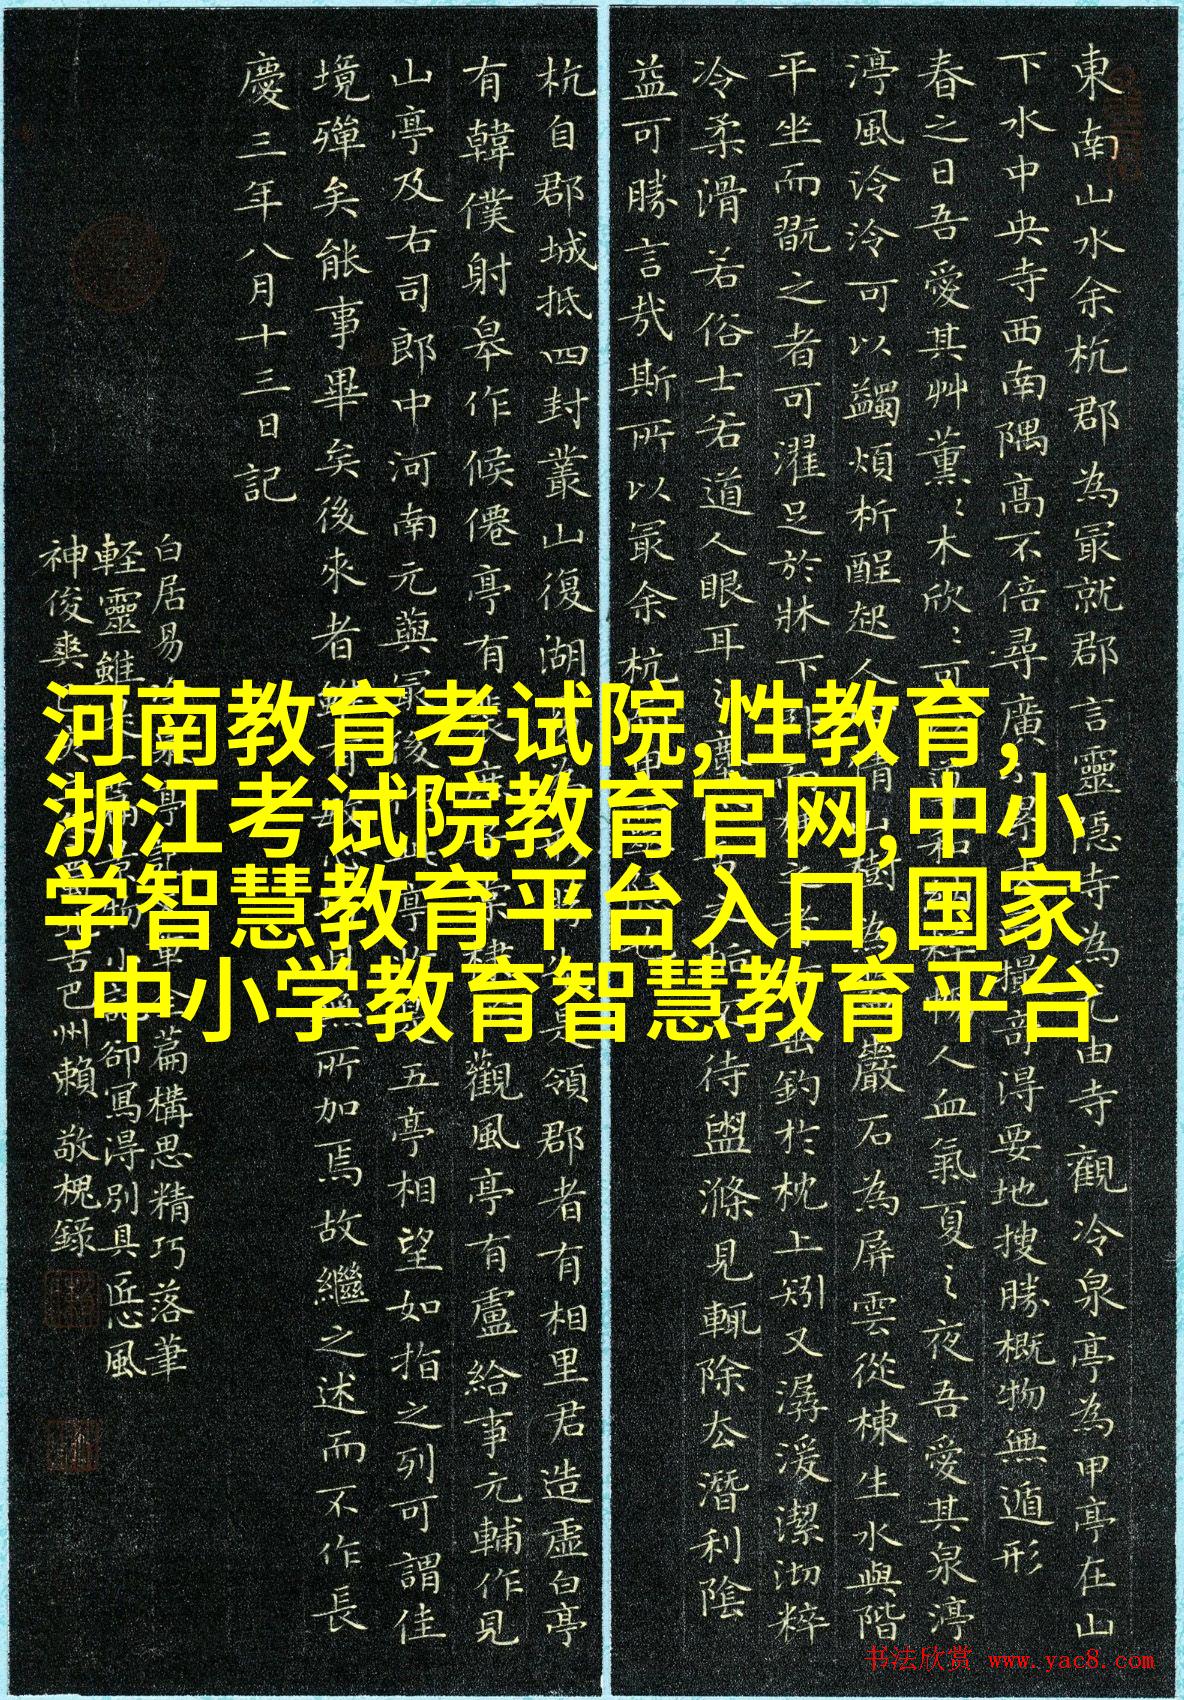 東南山水余杭郡為冣就郡言靈隐寺為尤由寺觀冷泉亭為甲亭在山
下水中央寺西南隅高不倍尋廣
撮竒淂要地搜勝概物無遁形
春之日吾愛其艸薰〻木欣〻可
人血氣夏之夜吾愛其泉渟
渟風泠泠可以蠲煩析酲起人
樹為
巖石為屏雲從棟生水與階
平坐而翫之者可濯足於牀下
垂釣於枕上矧又潺湲潔沏粹
冷柔滑若俗士若道人眼耳之
待盥滌見輒除去潛利陰
益可勝言㢤斯所以冣余杭
杭自郡城抵四封叢山復湖
領郡者有相里君造虛白亭
有韓僕射皋作候僊亭有
觀風亭有盧給事元輔作見
山亭及右司郎中河南元藇冣後作此亭
五亭相望如指之列可謂佳
境殫矣能事畢矣後來者
無所加焉故繼之述而不作長
慶三年八月十三日記
白居易
全篇構思精巧落筆
輕靈雖
卻寫淂別具匠心風
神俊爽
巴州賴敬槐錄
河南教育考试院,性教育,
浙江考试院教育官网,中小
学智慧教育平台入口,国家
中小学教育智慧教育平台
书法欣赏 www.yac8.com